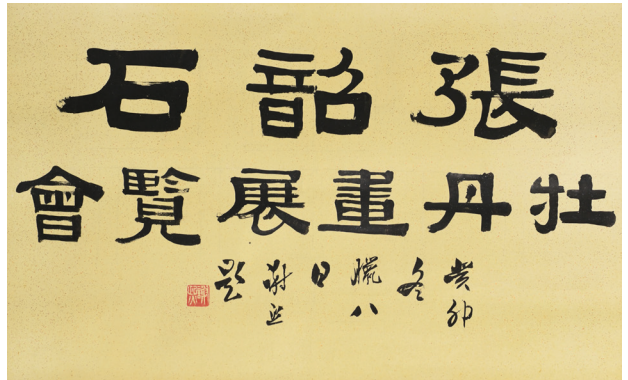 張韶石
牡丹畫展覽會
癸卯冬臘八日題